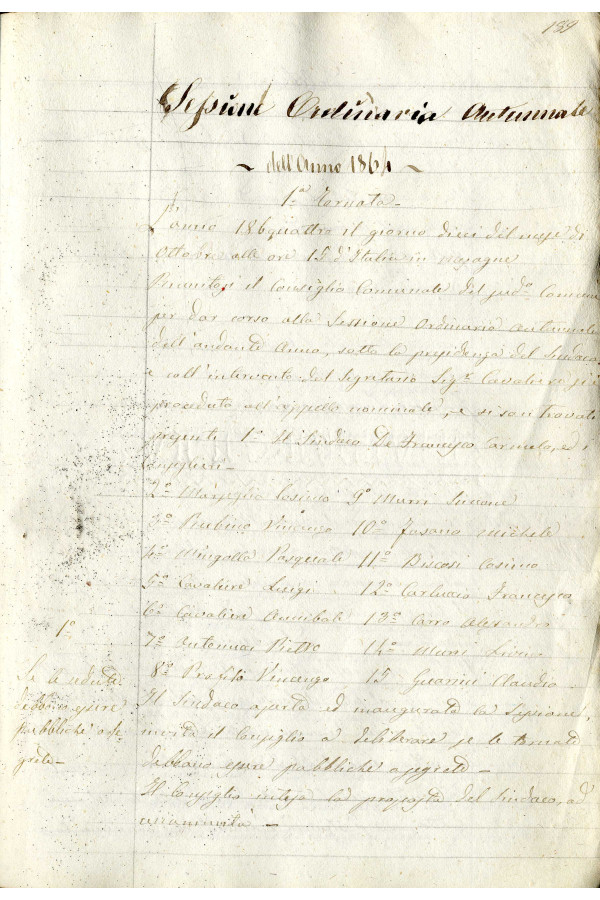 189
Sessione Ordinaria Autunnale
dell'Anno 1864
1ª Tornata
L'anno 186quattro il giorno dieci del mese di
Ottobre alle ore 15 d'Italia in
Riunitosi il Consiglio Comunale del sudº Comune
per dar corso alla Sessione Ordinaria Autunnale
dell'andante Anno, sotto la presidenza del Sindaco
e coll'intervento del Segretario Sigr Cavaliere si è
proceduto all'appello nominale, e si son trovati
presenti 1º Il Sindaco De Francesco Carmelo, ed i
Consiglieri
2º Cosimo 9º Murri Simone
3º Rubino Vincenzo 10º Fasano Michele
4º Mingolla Pasquale 11º Biscosi Cosimo
5º Cavaliere Luigi 12º Carluccio Francesco
6º Cavaliere Annibale 13º Carro Alesandro
7º Antonucci Pietro 14º Murri
8º Profilo Vincenzo 15 Guarini Claudio
1º
Se le sedute
debbano essere
pubbliche o se
grete
Il Sindaco aperta ed inaugurata la Sessione,
invita il Consiglio a deliberare se le tornate
debbano essere pubbliche o segrete
Il Consiglio intesa la proposta del Sindaco, ad
unanimità